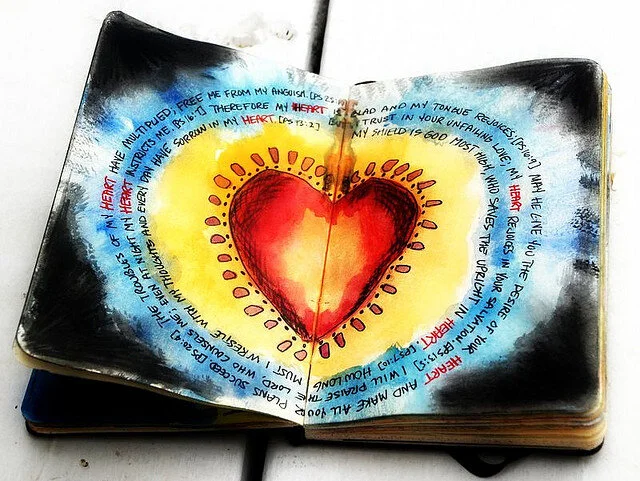 MY SHIELD IS GOD MOST HIGH, WHO SAVES THE UPRIGHT IN HEART. [PS7:10]
HOW LONG MUST I WRESTLE WITH MY THOUGHTS AND EVERY DAY HAVE SORROW IN MY HEART. [PS13:2]
I TRUST IN YOUR UNFAILING LOVE, MY HEART REJOICES IN YOUR SALVATION [PS13:5]
I WILL PRAISE THE LORD, WHO COUNSELS ME; EVEN AT NIGHT MY HEART INSTRUCTS ME [PS16:7]
THEREFORE MY HEART IS GLAD AND MY TONGUE REJOICES. [PS16:9]
MAY HE GIVE YOU THE DESIRE OF YOUR HEART AND MAKE ALL YOUR PLANS SUCCEED [PS20:4]
THE TROUBLES OF MY HEART HAVE MULTIPLIED, FREE ME FROM MY ANGUISH.